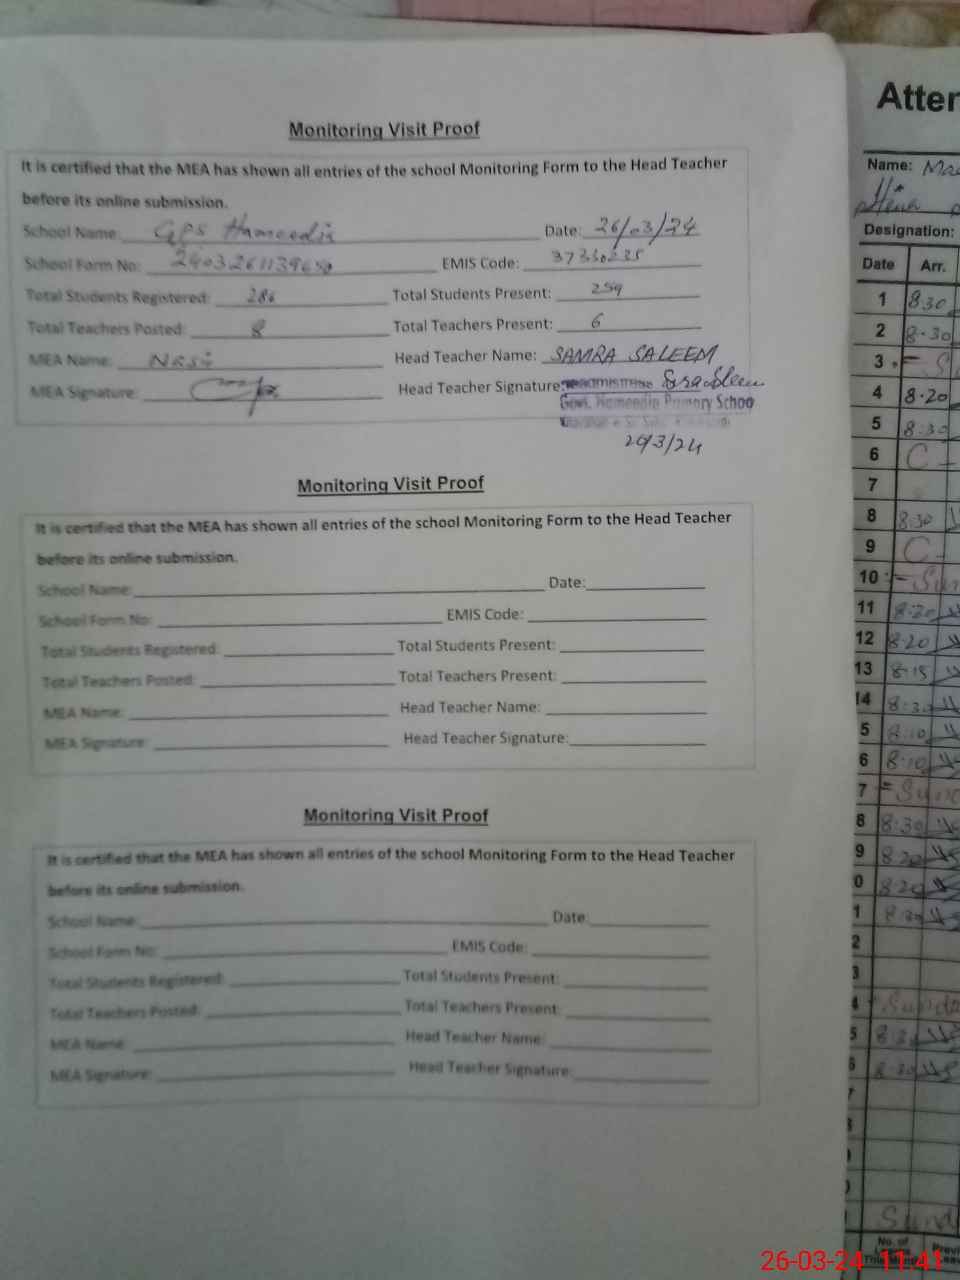 Monitoring Visit Proof
It is certified that the MEA has shown all entries of the school Monitoring Form to the Head Teacher
before its online submission.
School Name: GPS Hameedia Date: 26/03/24
School Form No: EMIS Code: 37330235
Total Students Registered: 286 Total Students Present: 259
Total Teachers Posted: 8 Total Teachers Present: 6
MEA Name: Head Teacher Name: SAMRA SALEEM
MEA Signature: Head Teacher Signature:
Govt. Hameedia Primary Schoo
26/3/24
Monitoring Visit Proof
It is certified that the MEA has shown all entries of the school Monitoring Form to the Head Teacher
before its online submission.
School Name: Date:
School Form No: EMIS Code:
Total Students Registered: Total Students Present:
Total Teachers Posted: Total Teachers Present:
MEA Name: Head Teacher Name:
MEA Signature: Head Teacher Signature:
Monitoring Visit Proof
It is certified that the MEA has shown all entries of the school Monitoring Form to the Head Teacher
before its online submission.
School Name: Date:
School Form No: EMIS Code:
Total Students Registered: Total Students Present:
Total Teachers Posted: Total Teachers Present:
MEA Name: Head Teacher Name:
MEA Signature: Head Teacher Signature:
Atter
Name:
Designation:
Date Arr.
1 8:30
2 8-30
3
4 8-20
5 8:30
6 C -
7
8 8:30
9 C -
10 - Sun
11 8-20
12 8-20
13 8-15
14 8:30
5 8:10
6 8:10
7 = Sund
8 8:30
9 8-20
0 8-20
1 8:30
2
3
4 Sunda
5 8:30
6 8-30
Sund
No. of
26-03-24 11:41